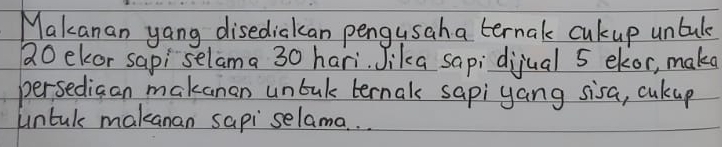 Makanan yang disediakan pengusaha ternak cukup untuk
20 ekor sapi selama 30 hari. Jika sapi dijual 5 ekor, maka
persediaan makanan untuk ternak sapi yang sisa, cukup
untuk makanan sapi selama...